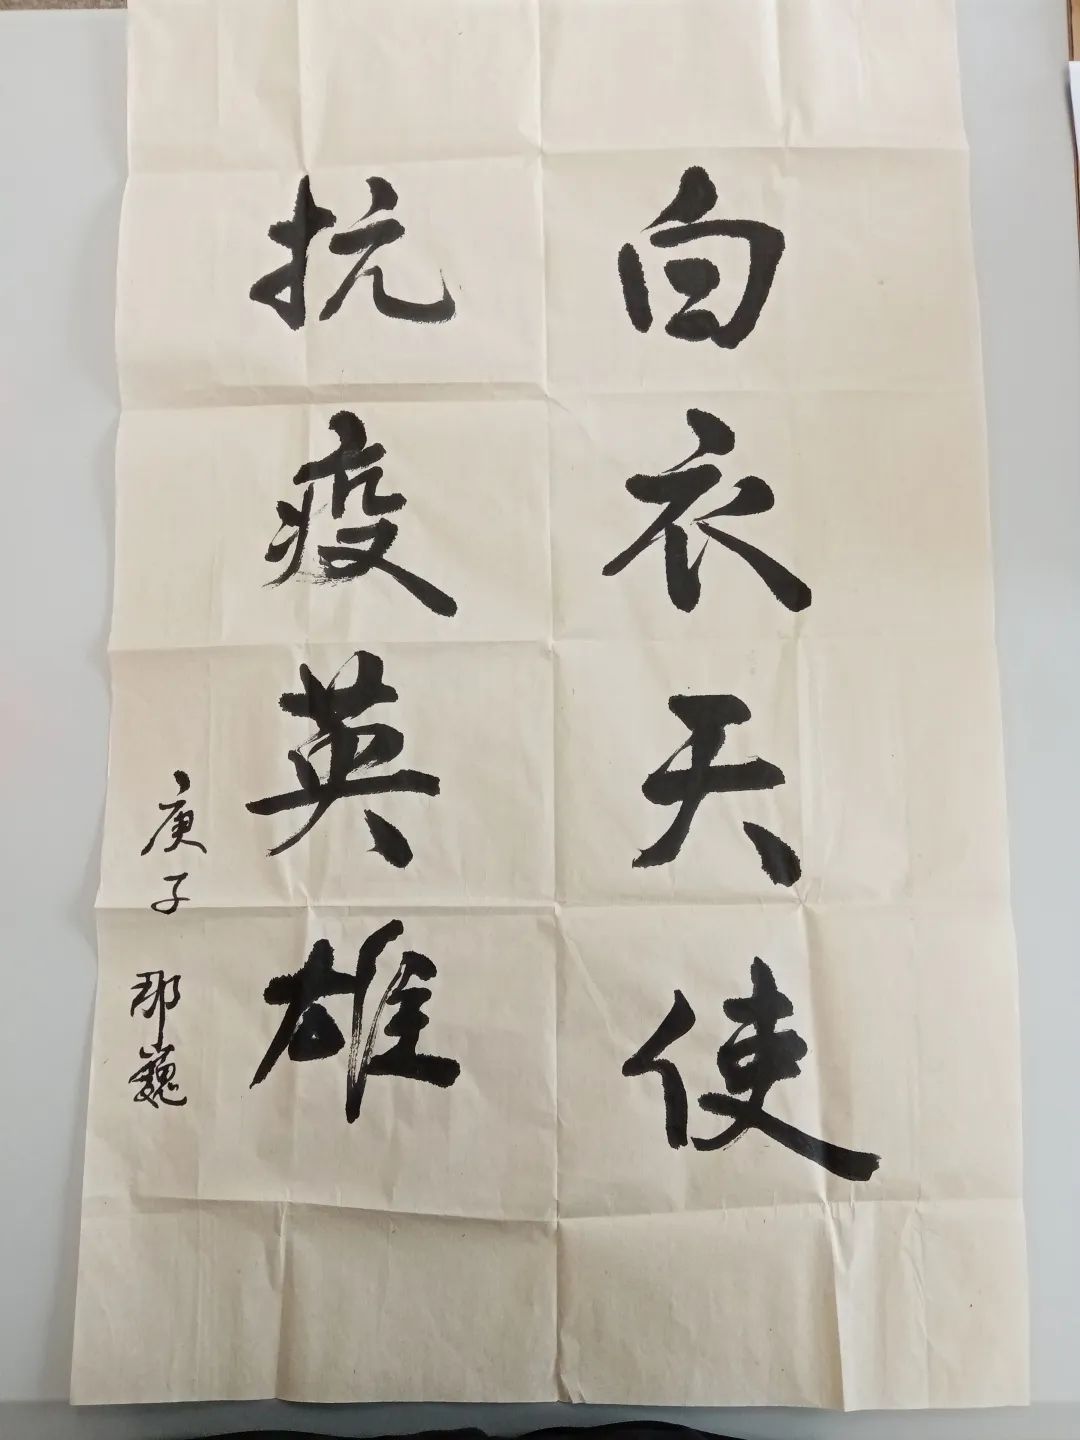 白衣天使
抗疫英雄
庚子 那巍